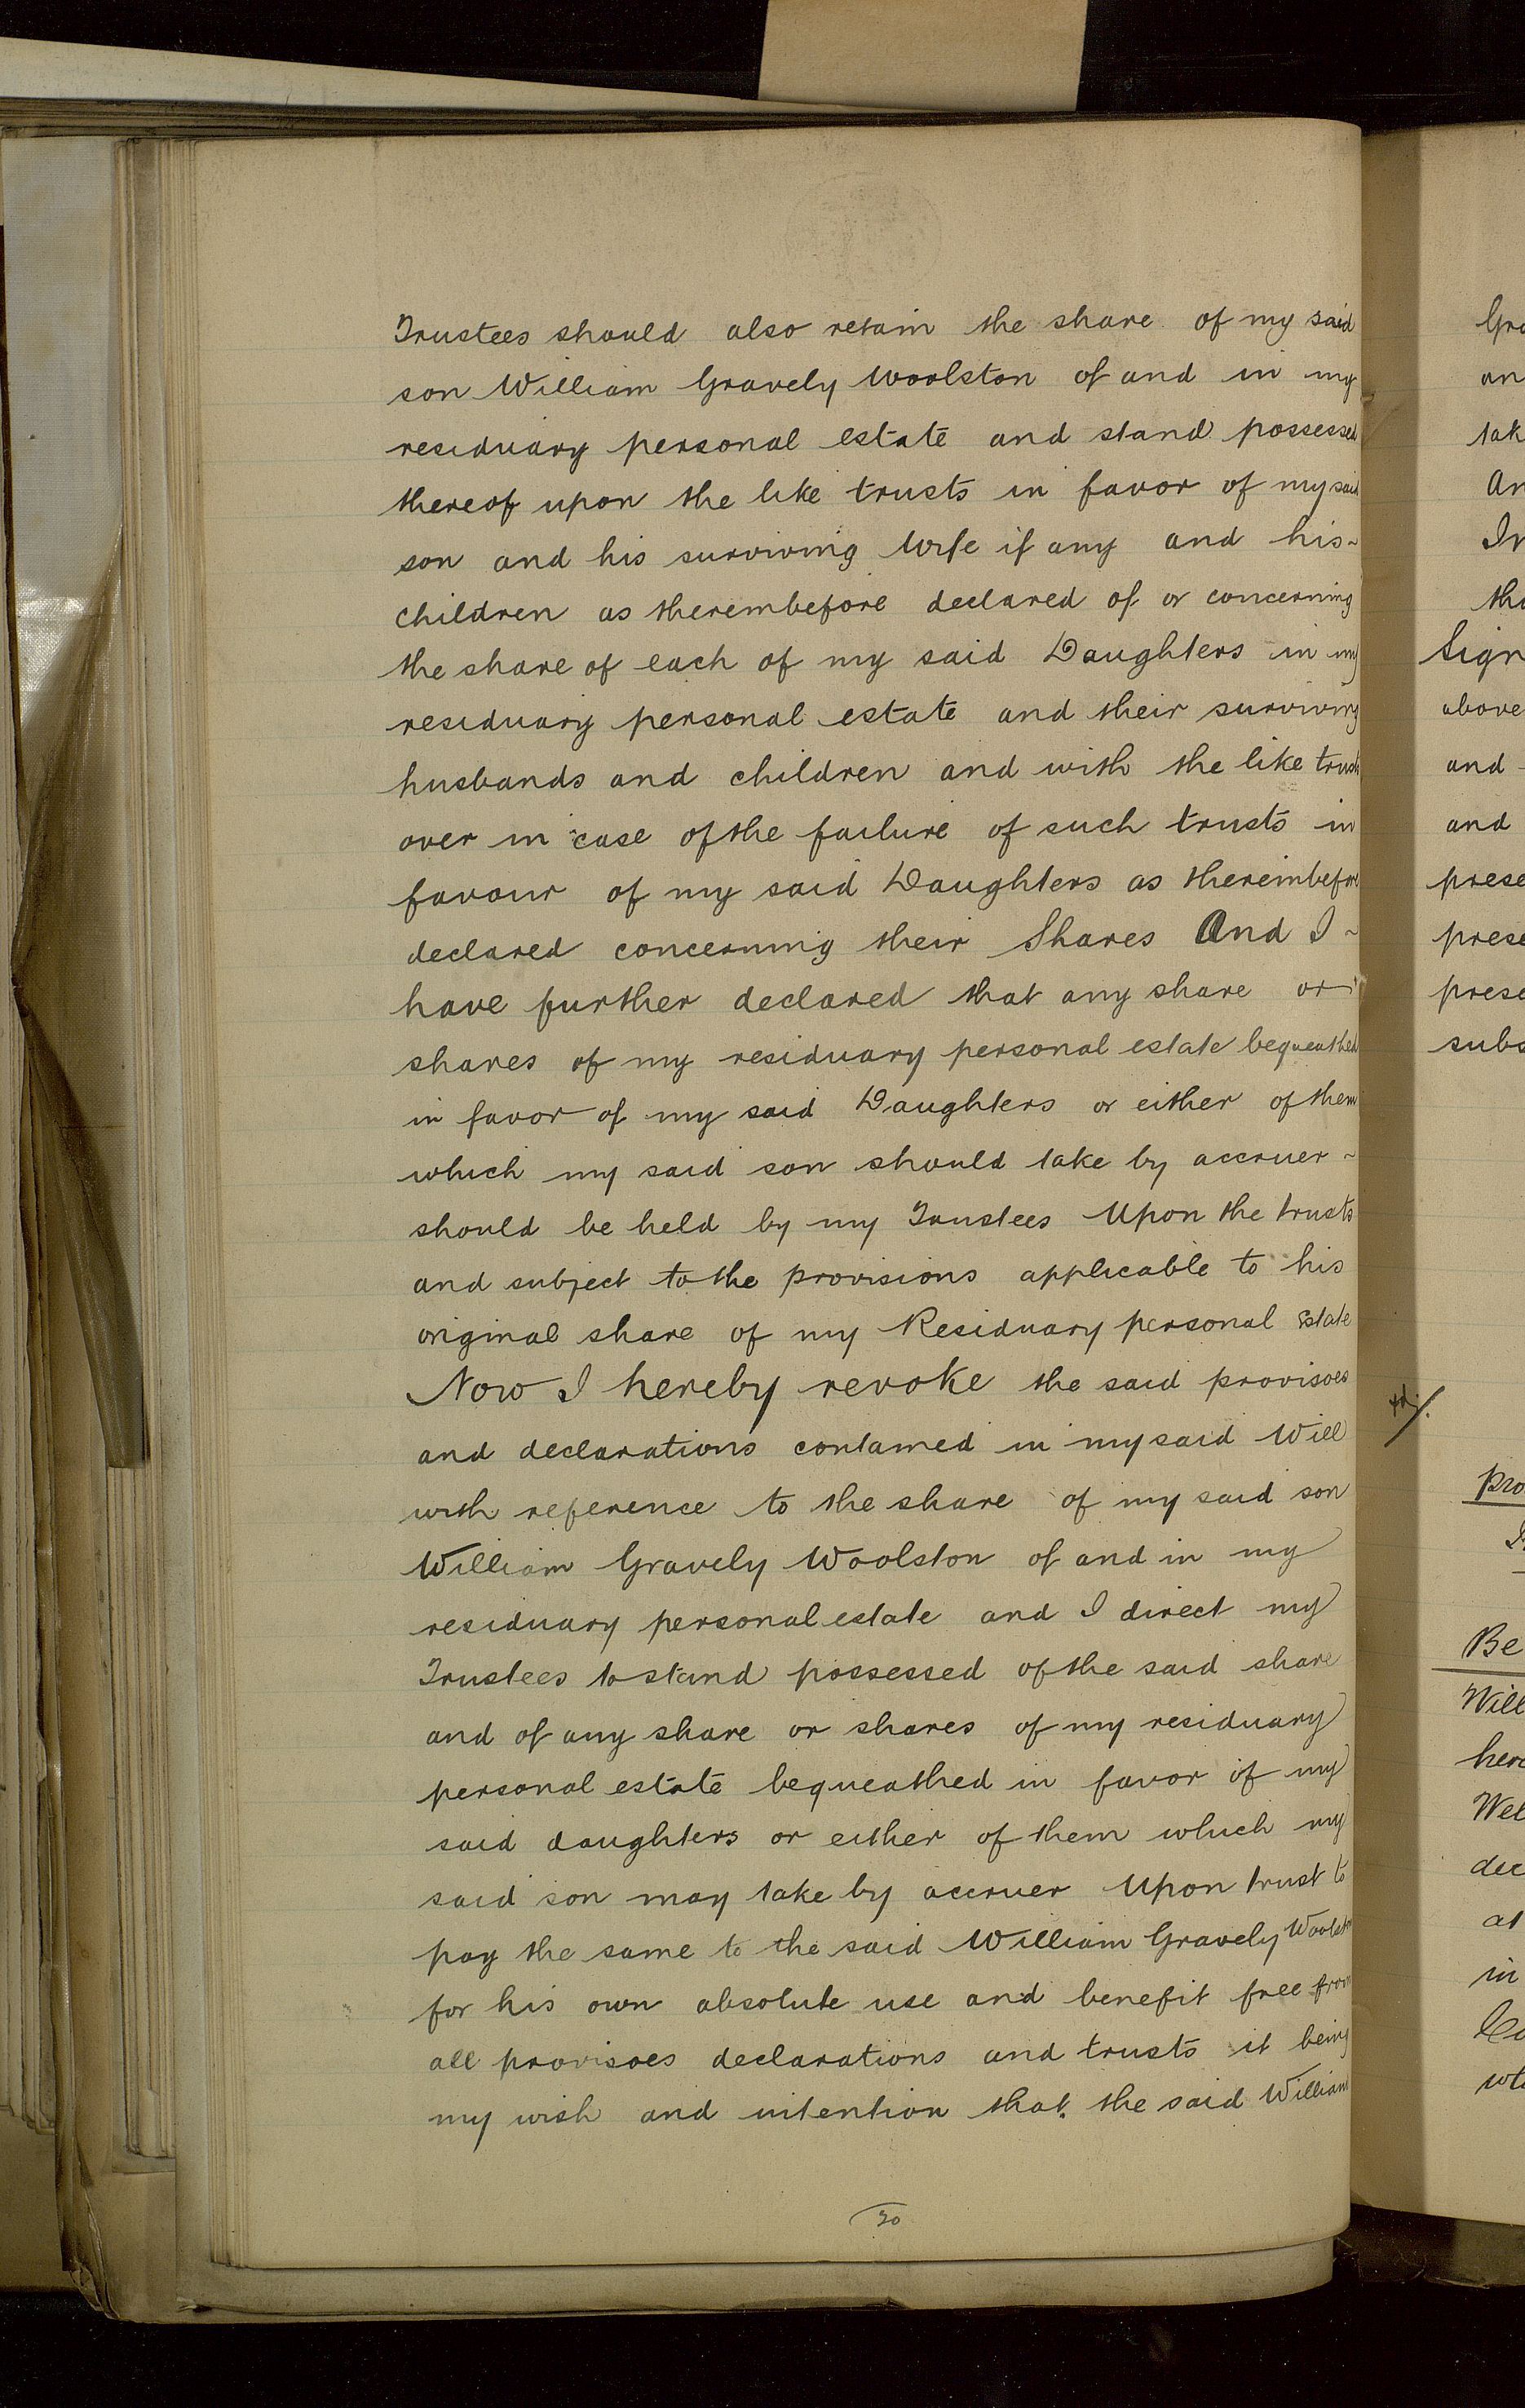 Trustees should also retain the share of my said
son William Gravely Woolston of and in my
residuary personal estate and stand possessed
thereof upon the like trusts in favor of my said
son and his surviving Wife if any and his~
children as thereinbefore declared of or concerning
the share of each of my said Daughters in my
residuary personal estate and their surviving
husbands and children and with the like trusts
over in case of the failure of such trusts in
favour of my said Daughters as thereinbefore
declared concerning their Shares And I~
have further declared that any share or
shares of my residuary personal estate bequeathed
in favor of my said Daughters or either of them
which my said son should take by accruer~
should be held by my Trustees Upon the trusts
and subject to the provisions applicable to his
original share of my Residuary personal Estate
Now I hereby revoke the said provisoes
and declarations contained in my said Will
with reference to the share of my said son
William Gravely Woolston of and in my
residuary personal estate and I direct my
Trustees to stand possessed of the said share
and of any share or shares of my residuary
personal estate bequeathed in favor of my
said daughters or either of them which my
said son may take by accruer Upon trust to
pay the same to the said William Gravely Woolston
for his own absolute use and benefit free from
all provisoes declarations and trusts it being
my wish and intention that the said William
30
Gra
an
tak
An
In
tha
Sign
above
and
and
prese
prese
prese
subs
Pro
Be
Will
here
Wel
dec
at
in
Co